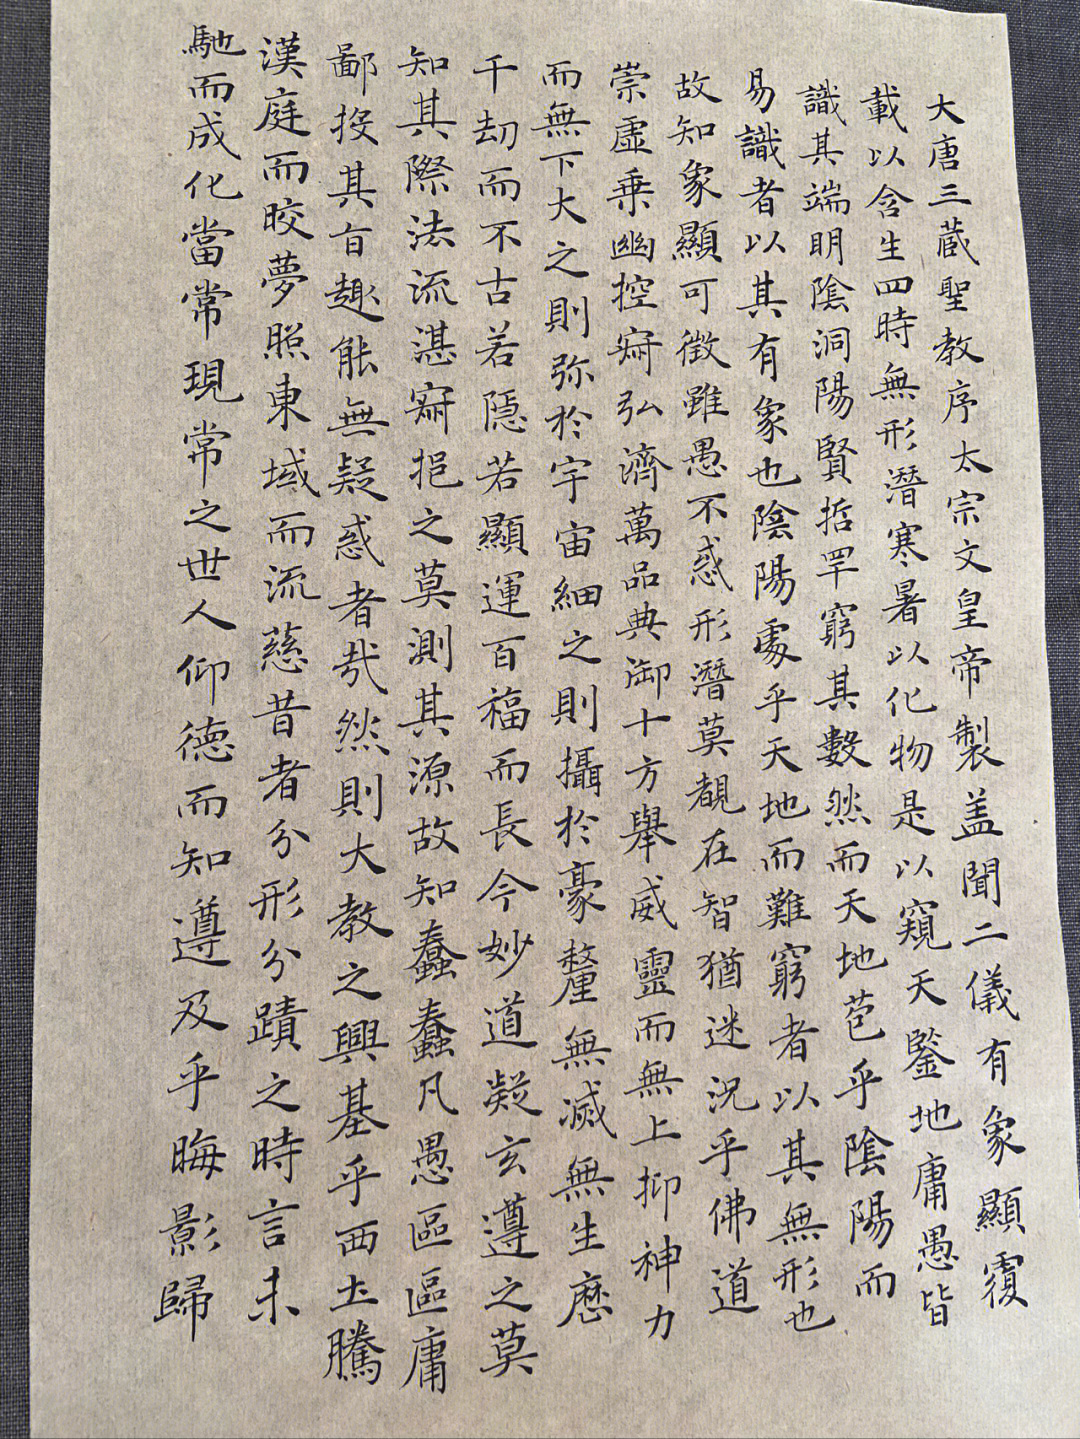 大唐三藏聖教序太宗文皇帝製盖聞二儀有象顯覆
載以含生四時無形潛寒暑以化物是以窺天鑒地庸愚皆
識其端明陰洞陽賢哲罕窮其數然而天地苞乎陰陽而
易識者以其有象也陰陽處乎天地而難窮者以其無形也
故知象顯可徵雖愚不惑形潛莫覩在智猶迷況乎佛道
崇虛乗幽控寂弘濟萬品典御十方舉威靈而無上抑神力
而無下大之則弥於宇宙細之則攝於豪釐無滅無生歷
千劫而不古若隱若顯運百福而長今妙道凝玄遵之莫
知其際法流湛寂挹之莫測其源故知蠢蠢凡愚區區庸
鄙投其旨趣能無疑惑者哉然則大教之興基乎西土騰
漢庭而皎夢照東域而流慈昔者分形分蹟之時言未
馳而成化當常現常之世人仰德而知遵及乎晦影歸